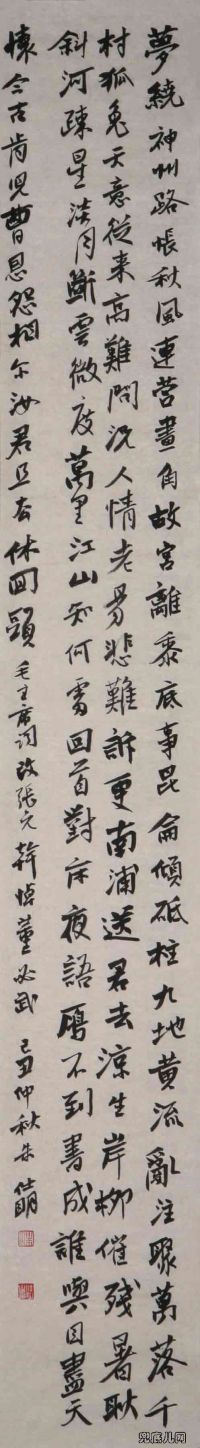 夢繞神州路悵秋風連營畫角故宮離黍底事昆侖傾砥柱九地黃流亂注聚萬落千
村狐兔天意從来高難問況人情老易悲難訴更南浦送君去涼生岸柳催殘暑耿
斜河疎星淡月斷雲微度萬里江山知何處回首對床夜語雁不到書成誰與目盡天
懷今古肯兒曹恩怨相尔汝君且去休回頭 毛主席詞改張元幹悼董必武 己丑仲秋朱
兜底儿网